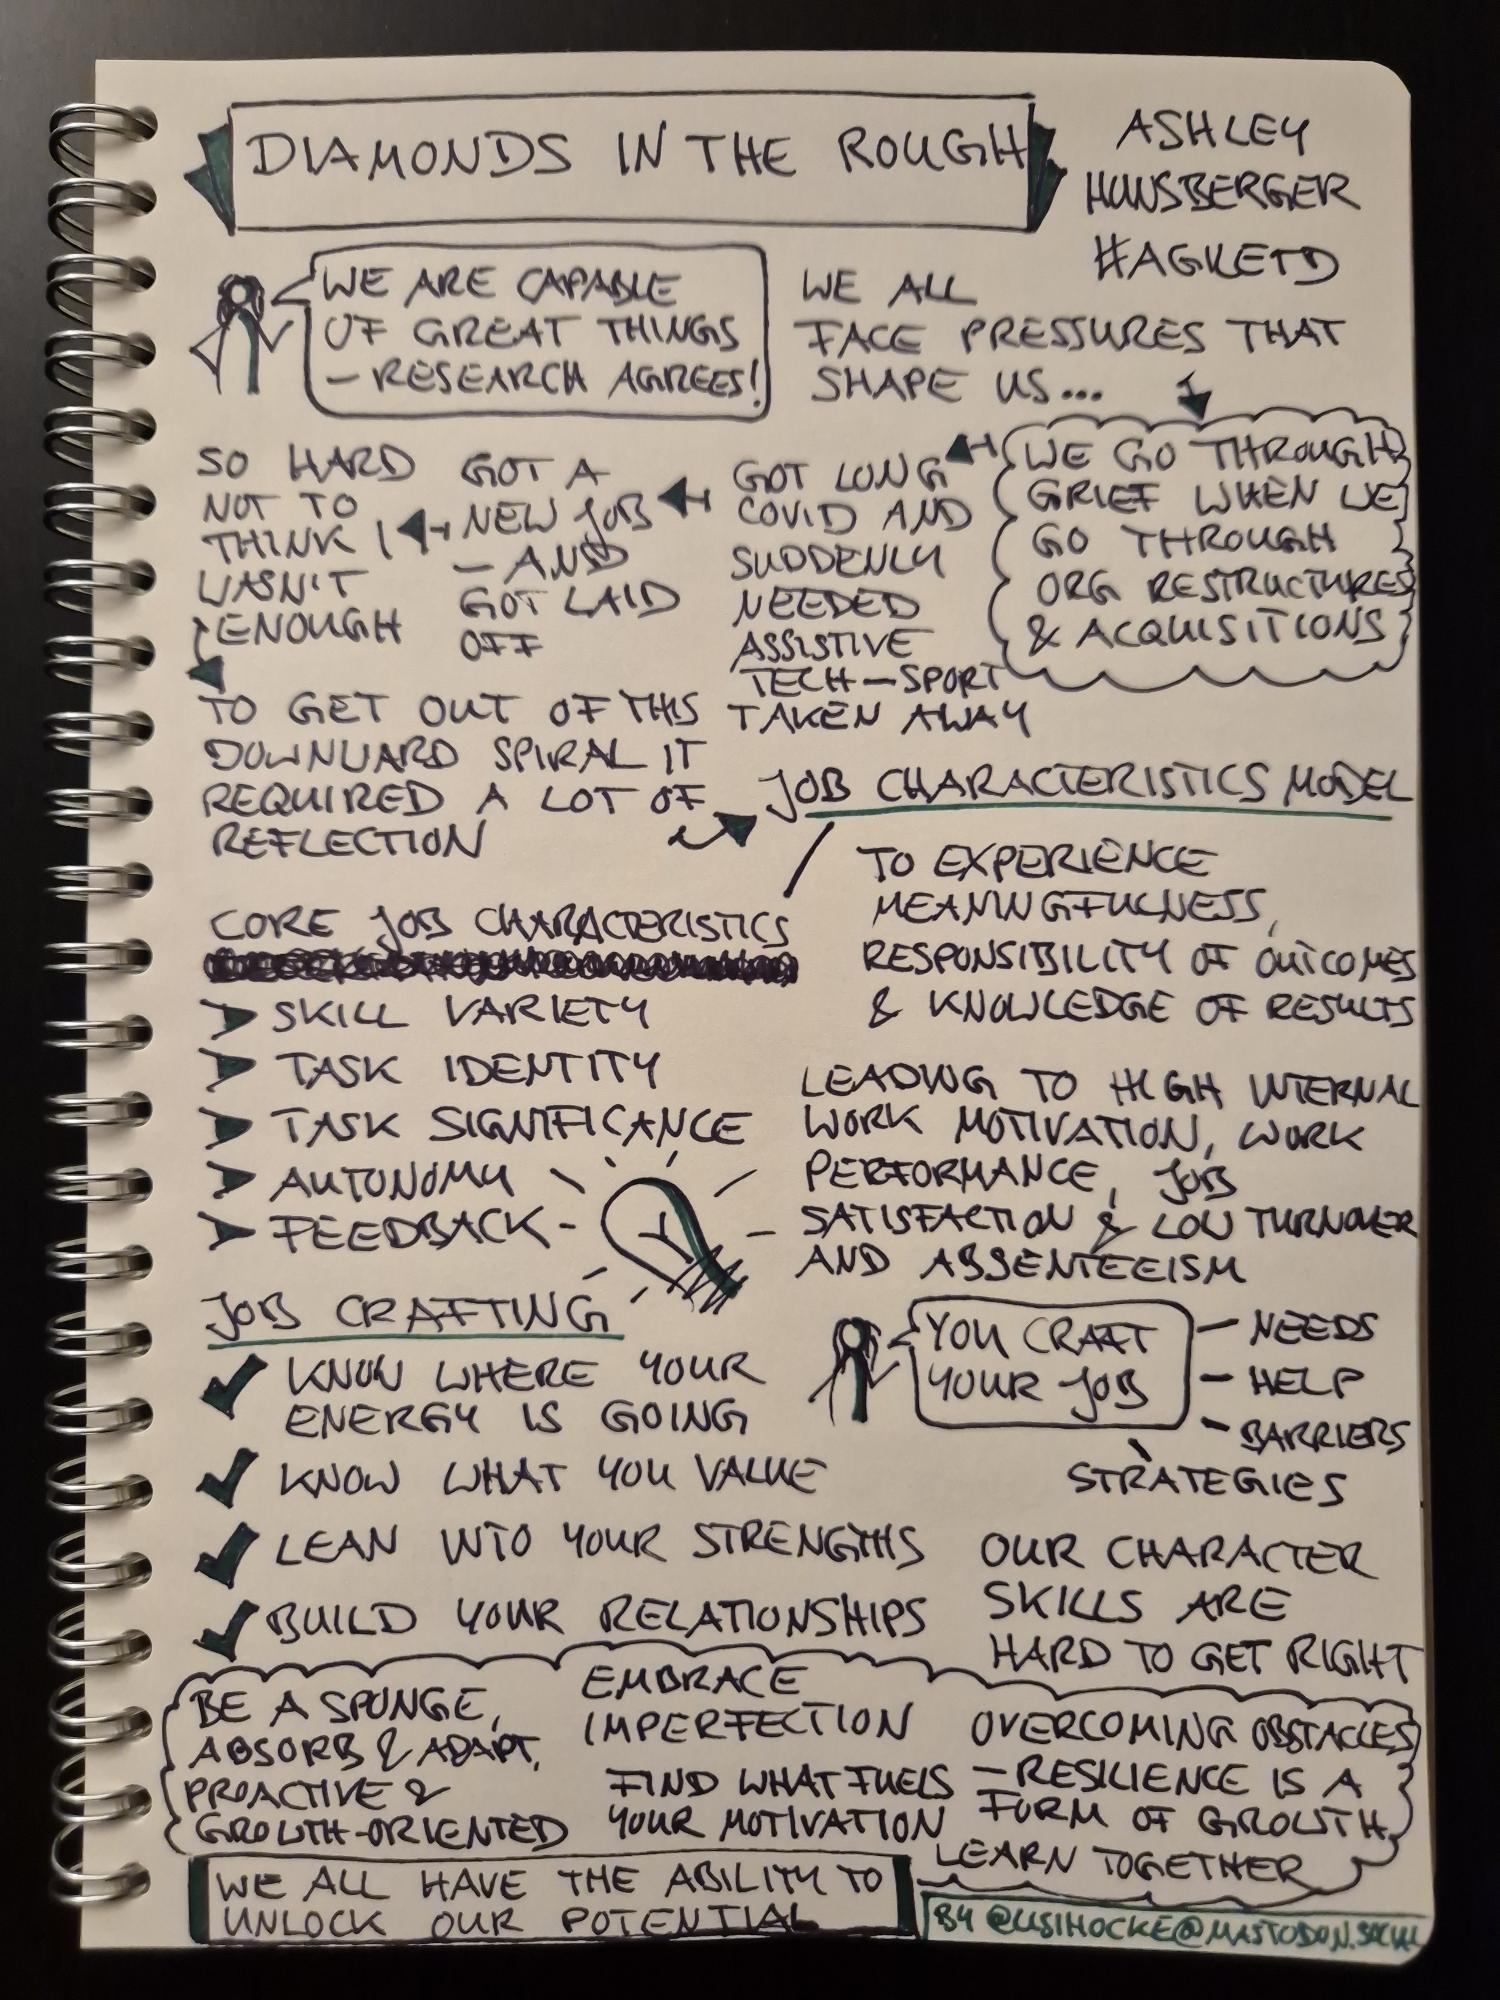 DIAMONDS IN THE ROUGH
ASHLEY
HUNSBERGER
#AGILETD
WE ARE CAPABLE
OF GREAT THINGS
– RESEARCH AGREES!
WE ALL
FACE PRESSURES THAT
SHAPE US...
WE GO THROUGH
GRIEF WHEN WE
GO THROUGH
ORG RESTRUCTURES
& ACQUISITIONS
GOT LONG
COVID AND
SUDDENLY
NEEDED
ASSISTIVE
TECH – SPORT
TAKEN AWAY
GOT A
NEW JOB
– AND
GOT LAID
OFF
SO HARD
NOT TO
THINK I
WASN'T
ENOUGH
TO GET OUT OF THIS
DOWNWARD SPIRAL IT
REQUIRED A LOT OF
REFLECTION
JOB CHARACTERISTICS MODEL
CORE JOB CHARACTERISTICS
SKILL VARIETY
TASK IDENTITY
TASK SIGNIFICANCE
AUTONOMY
FEEDBACK
TO EXPERIENCE
MEANINGFULNESS,
RESPONSIBILITY OF OUTCOMES
& KNOWLEDGE OF RESULTS
LEADING TO HIGH INTERNAL
WORK MOTIVATION, WORK
PERFORMANCE, JOB
SATISFACTION & LOW TURNOVER
AND ABSENTEEISM
JOB CRAFTING
KNOW WHERE YOUR
ENERGY IS GOING
KNOW WHAT YOU VALUE
LEAN INTO YOUR STRENGTHS
BUILD YOUR RELATIONSHIPS
YOU CRAFT
YOUR JOB
– NEEDS
– HELP
– BARRIERS
STRATEGIES
OUR CHARACTER
SKILLS ARE
HARD TO GET RIGHT
BE A SPONGE,
ABSORB & ADAPT,
PROACTIVE &
GROWTH-ORIENTED
EMBRACE
IMPERFECTION
FIND WHAT FUELS
YOUR MOTIVATION
OVERCOMING OBSTACLES
– RESILIENCE IS A
FORM OF GROWTH
LEARN TOGETHER
WE ALL HAVE THE ABILITY TO
UNLOCK OUR POTENTIAL
BY @LISIHOCKE@MASTODON.SOCIAL